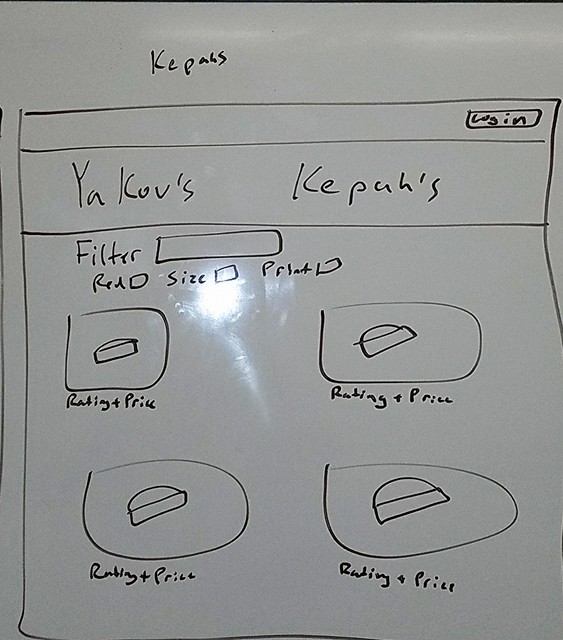 Kepahs
Login
Yakov's Kepah's
Filter
Red Size Print
Rating + Price Rating + Price
Rating + Price Rating + Price